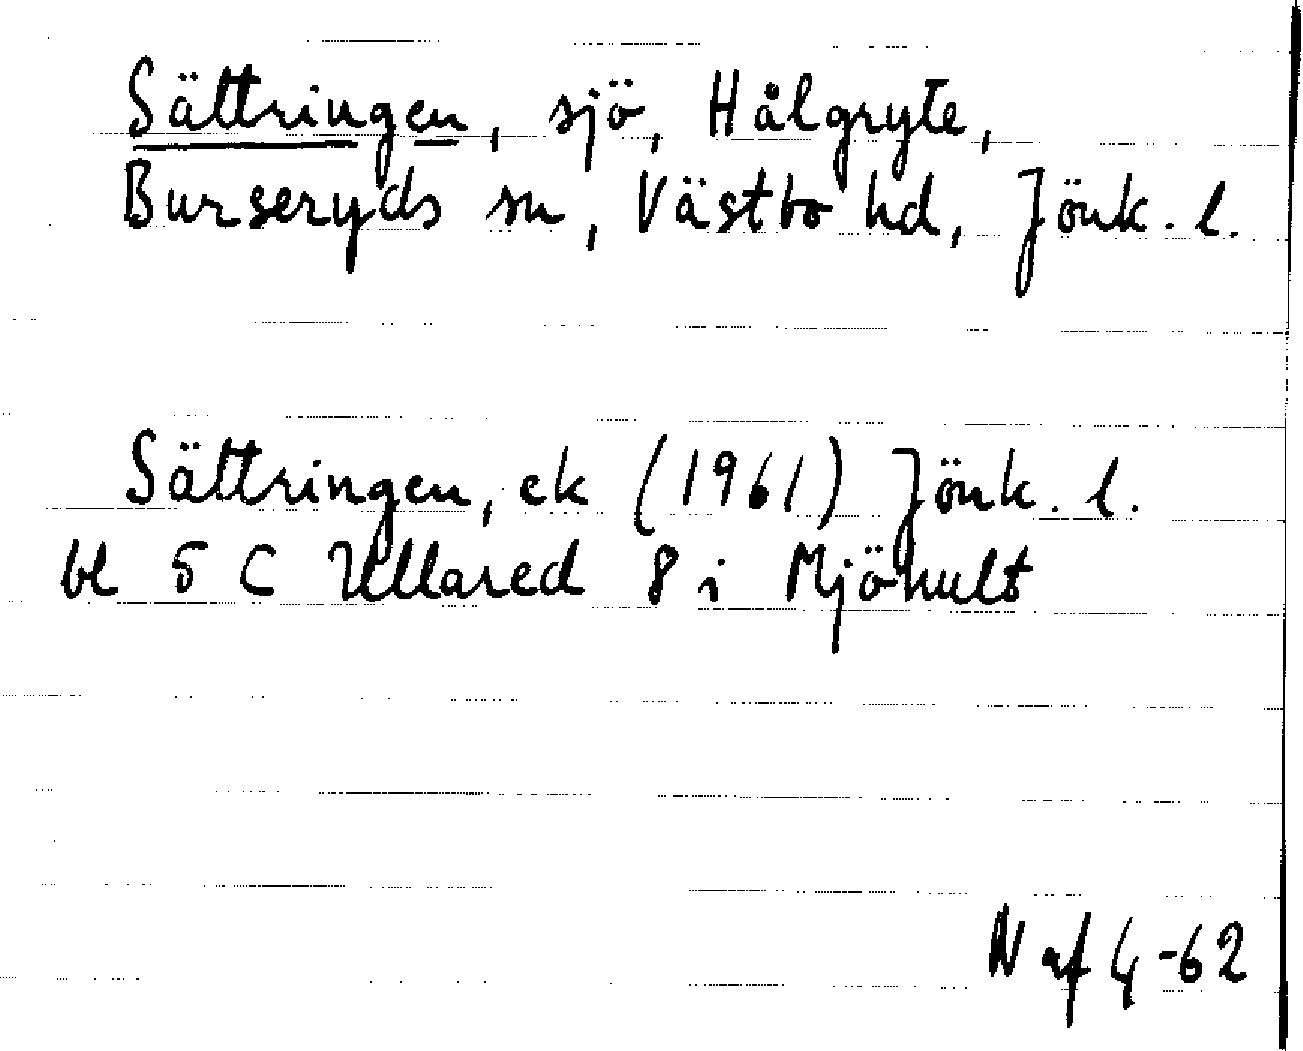 Sättringen, sjö, Hålgryte,
Burseryds sn, Västbo hd, Jönk. l.
Sättringen, ek (1961) Jönk. l.
bl 5 C Ullared 8 i Mjöhult
N af 4-62